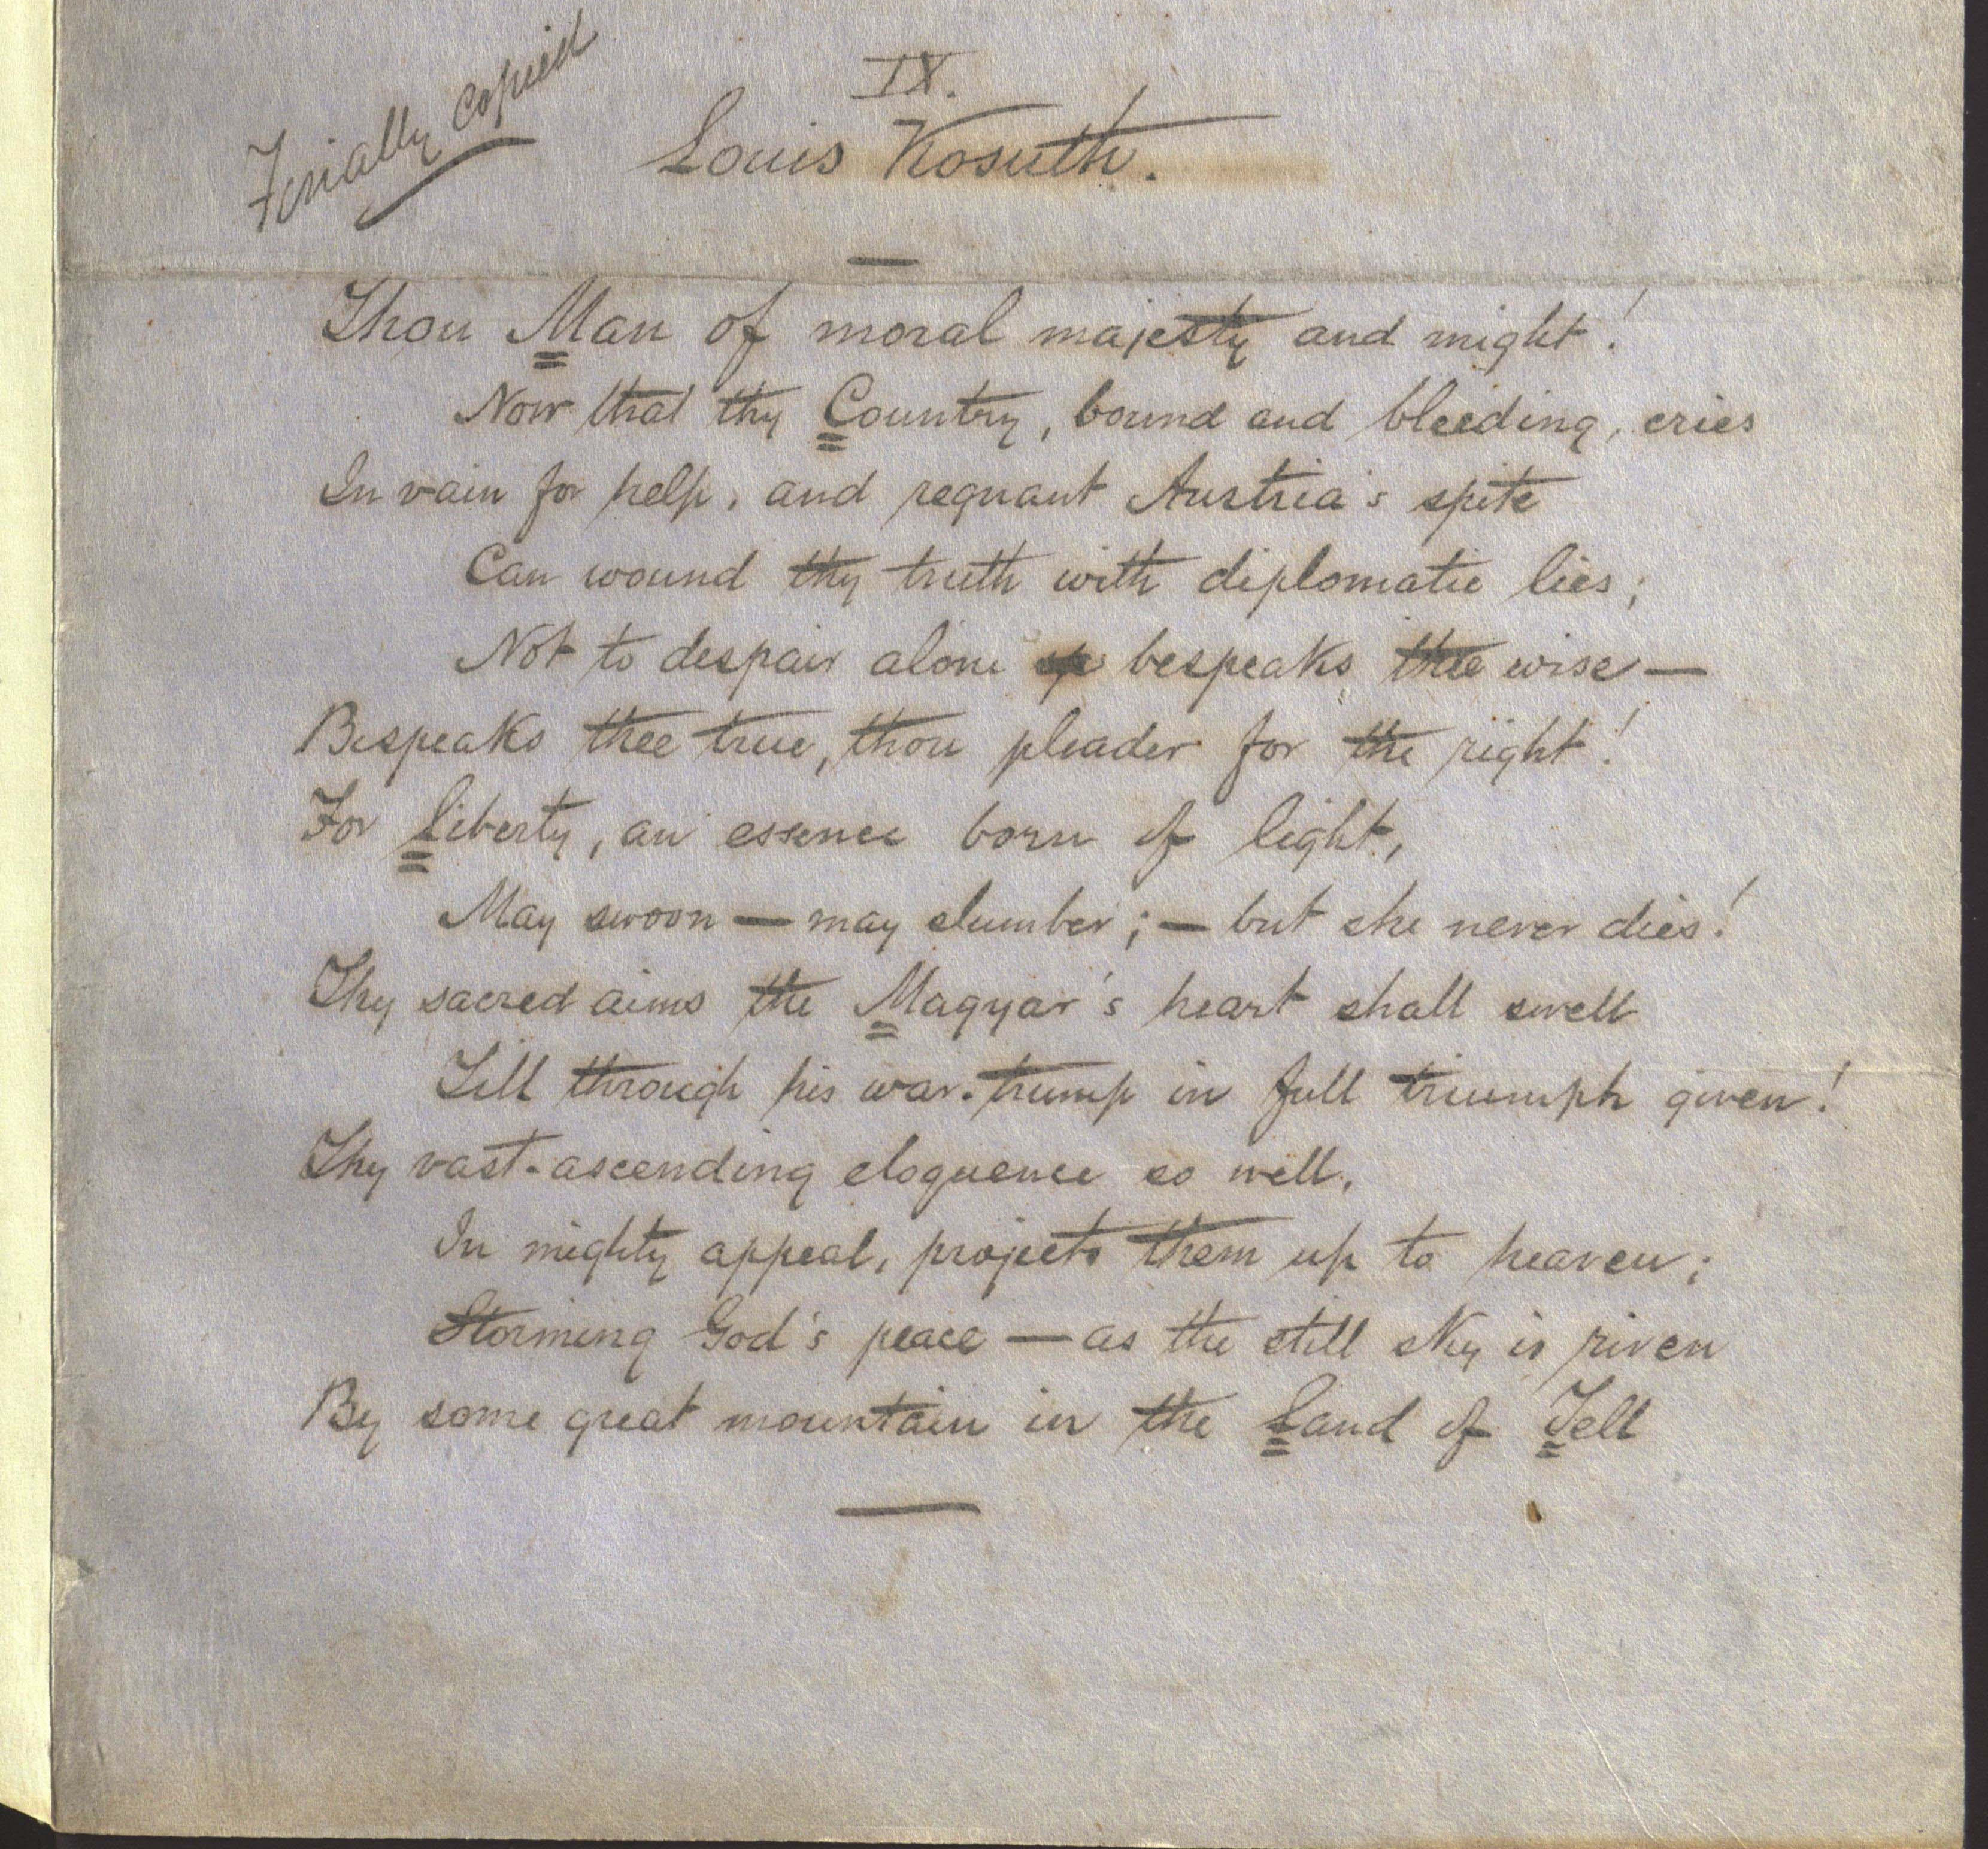 Finally Copied
IX.
Louis Kosuth.
Thou Man of moral majesty and might!
Now that thy Country, bound and bleeding, cries
In vain for help, and regnant Austria's spite
Can wound thy truth with diplomatic lies;
Not to despair alone bespeaks thee wise—
Bespeaks thee true, thou pleader for the right!
For Liberty, an essence born of light,
May swoon — may slumber; — but she never dies!
Thy sacred aims the Magyar's heart shall swell
Till through his war-trump in full triumph given!
Thy vast-ascending eloquence so well,
In mighty appeal, projects them up to heaven;
Storming God's peace — as the still sky is riven
By some great mountain in the Land of Tell